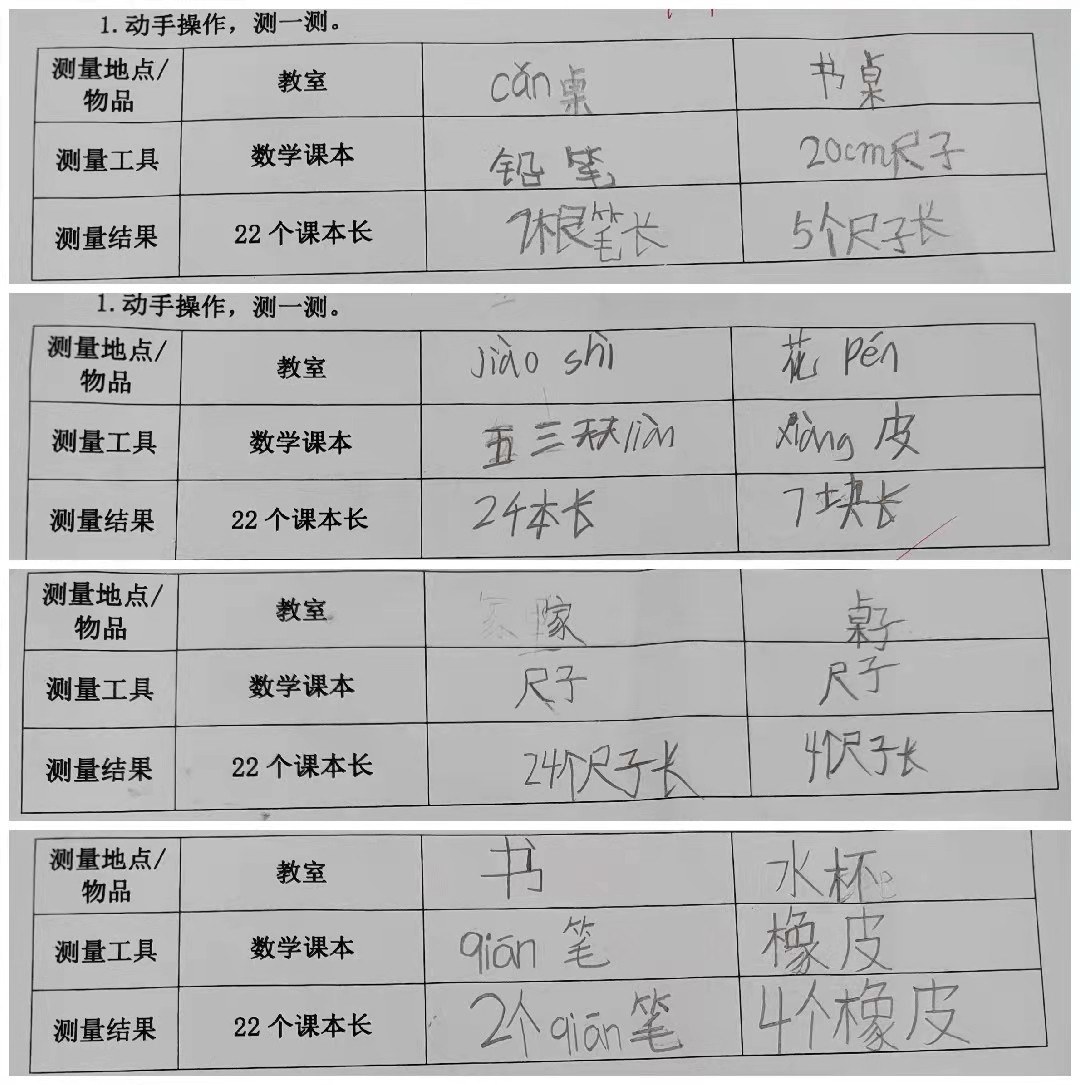 1.动手操作，测一测。
测量地点/物品 教室 cǎn桌 书桌
测量工具 数学课本 铅笔 20cm尺子
测量结果 22个课本长 7根笔长 5个尺子长
1.动手操作，测一测。
测量地点/物品 教室 jiào shì 花 pén
测量工具 数学课本 五三天天liàn xiàng 皮
测量结果 22个课本长 24本长 7块长
测量地点/物品 教室 家 桌子
测量工具 数学课本 尺子 尺子
测量结果 22个课本长 24个尺子长 4个尺子长
测量地点/物品 教室 书 水杯
测量工具 数学课本 qiān 笔 橡皮
测量结果 22个课本长 2个qiān笔 4个橡皮